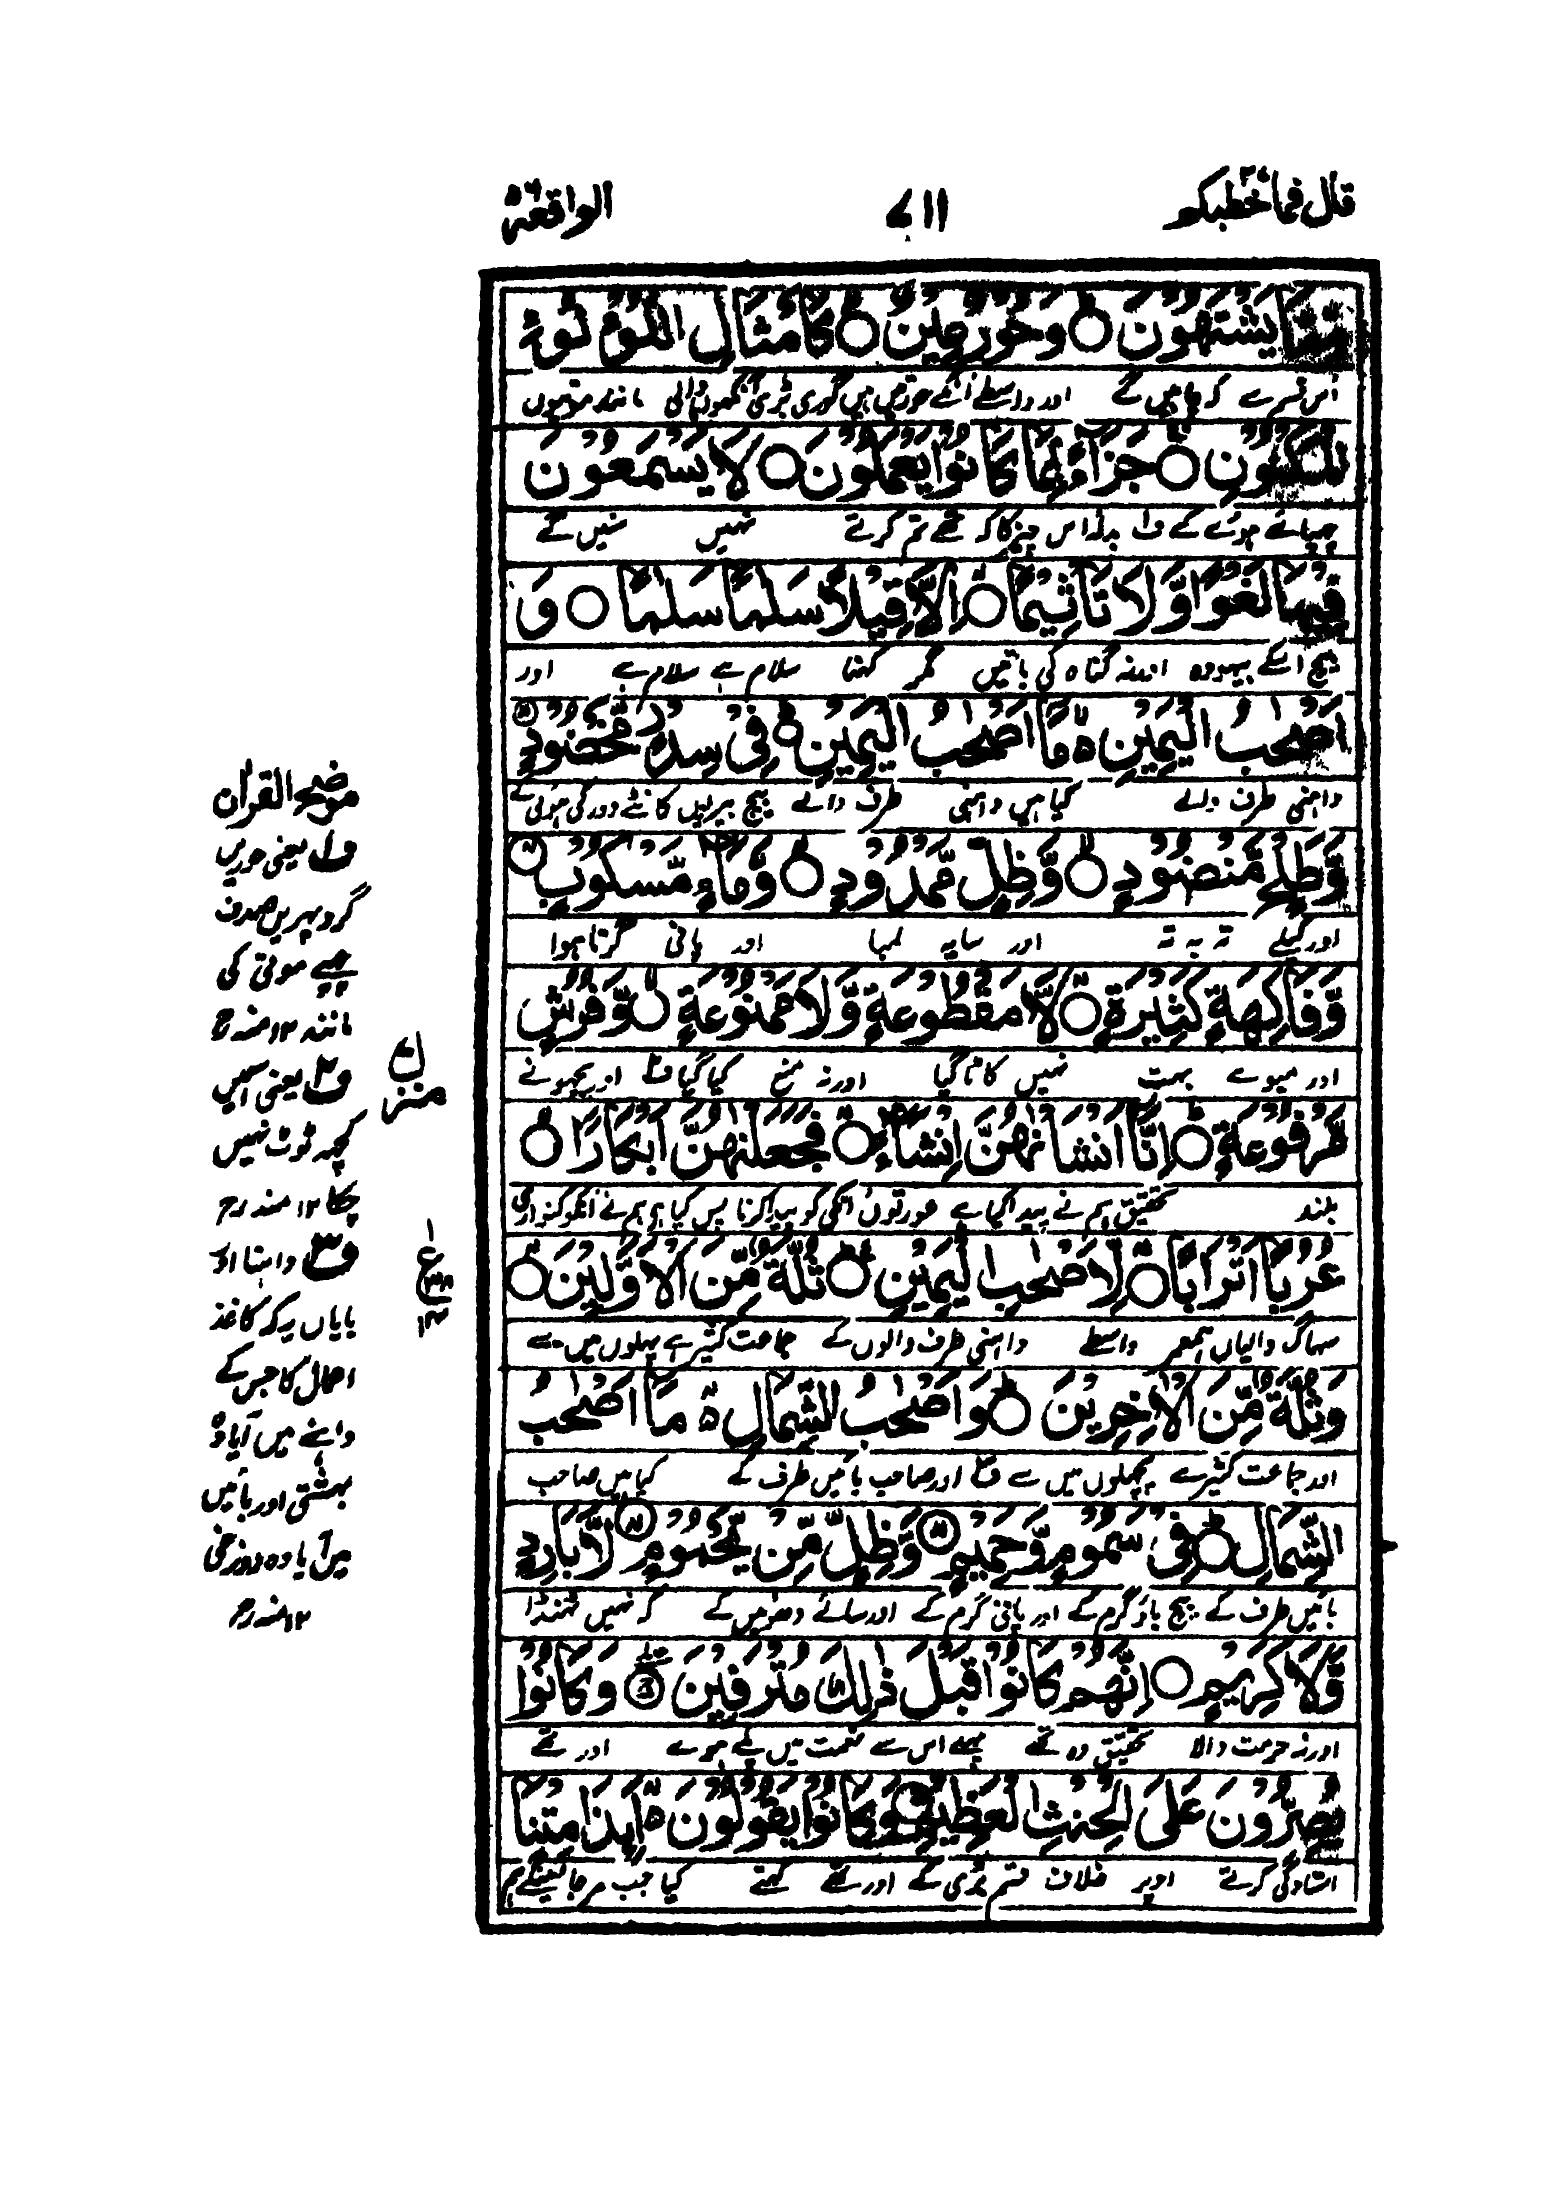 قال فما خطبکم ۲۷
۷۱۱
الواقعة ۵۶
مِّمَّا يَشْتَهُوْنَ ○ وَحُوْرٌ عِيْنٌ ○ كَاَمْثَالِ اللُّؤْلُؤِ
اس قسم سے کہ چاہیں گے اور واسطے انکے حوریں ہیں گوری بڑی آنکھوں والی مانند موتیوں
الْمَكْنُوْنِ ○ جَزَآءًۢ بِمَا كَانُوْا يَعْمَلُوْنَ ○ لَا يَسْمَعُوْنَ
چھپائے ہوئے کے ف۱ بدلہ اس چیز کا کہ تھے تم کرتے نہیں سنیں گے
فِيْهَا لَغْوًا وَّلَا تَاْثِيْمًا ○ اِلَّا قِيْلًا سَلٰمًا سَلٰمًا ○ وَ
بیچ اسکے بیہودہ اور نہ گناہ کی باتیں مگر کہنا سلام ہے سلام ہے اور
اَصْحٰبُ الْيَمِيْنِ ە مَآ اَصْحٰبُ الْيَمِيْنِ ○ فِيْ سِدْرٍ مَّخْضُوْدٍ ○
داہنی طرف والے کیا ہیں داہنی طرف والے بیچ بیریوں کانٹے دور کی ہوئی کے
وَّطَلْحٍ مَّنْضُوْدٍ ○ وَّظِلٍّ مَّمْدُوْدٍ ○ وَّمَآءٍ مَّسْكُوْبٍ ○
اور کیلے تہ بہ تہ اور سایہ لمبا اور پانی گرتا ہوا
وَّفَاكِهَةٍ كَثِيْرَةٍ ○ لَّا مَقْطُوْعَةٍ وَّلَا مَمْنُوْعَةٍ ○ وَّفُرُشٍ
اور میوے بہت نہیں کاٹا گیا اور نہ منع کیا گیا ف۲ اور بچھونے
مَّرْفُوْعَةٍ ○ اِنَّآ اَنْشَاْنٰهُنَّ اِنْشَآءً ○ فَجَعَلْنٰهُنَّ اَبْكَارًا ○
بلند تحقیق ہم نے پیدا کیا ہے عورتوں انکی کو پیدا کرنا پس کیا ہے ہم نے انکو کنواری
عُرُبًا اَتْرَابًا ○ لِّاَصْحٰبِ الْيَمِيْنِ ○ ثُلَّةٌ مِّنَ الْاَوَّلِيْنَ ○
سہاگ والیاں ہمعمر واسطے داہنی طرف والوں کے جماعت کثیر ہے پہلوں میں سے
وَثُلَّةٌ مِّنَ الْاٰخِرِيْنَ ○ وَاَصْحٰبُ الشِّمَالِ ە مَآ اَصْحٰبُ
اور جماعت کثیر ہے پچھلوں میں سے ف۳ اور صاحب بائیں طرف کے کیا ہیں صاحب
الشِّمَالِ ○ فِيْ سَمُوْمٍ وَّحَمِيْمٍ ○ وَّظِلٍّ مِّنْ يَّحْمُوْمٍ ○ لَّا بَارِدٍ
بائیں طرف کے بیچ باؤ گرم کے اور پانی گرم کے اور سائے دھوئیں کے کہ نہیں ٹھنڈا
وَّلَا كَرِيْمٍ ○ اِنَّهُمْ كَانُوْا قَبْلَ ذٰلِكَ مُتْرَفِيْنَ ○ وَكَانُوْا
اور نہ حرمت والا تحقیق وہ تھے پہلے اس سے نعمت میں پلے ہوئے اور تھے
يُصِرُّوْنَ عَلَى الْحِنْثِ الْعَظِيْمِ ○ وَكَانُوْا يَقُوْلُوْنَ ە اَىِٕذَا مِتْنَا
استادگی کرتے اوپر خلاف قسم بڑی کے اور تھے کہتے کیا جب مر جائینگے ہم
موضح القرآن
ف۱ یعنی حوریں
گرد پھریں صدف
چھپے موتی کی
مانند ۱۲ منہ رح
ف۲ یعنی اسمیں
کچھ ٹوٹ نہیں
چکا ۱۲ منہ رح
ف۳ داہنا اور
بایاں یہ کہ کاغذ
اعمال کا جس کے
داہنے میں آیا وہ
بہشتی اور بائیں
میں آیا وہ دوزخی
۱۲ منہ رح
منزل
ع
۱۴